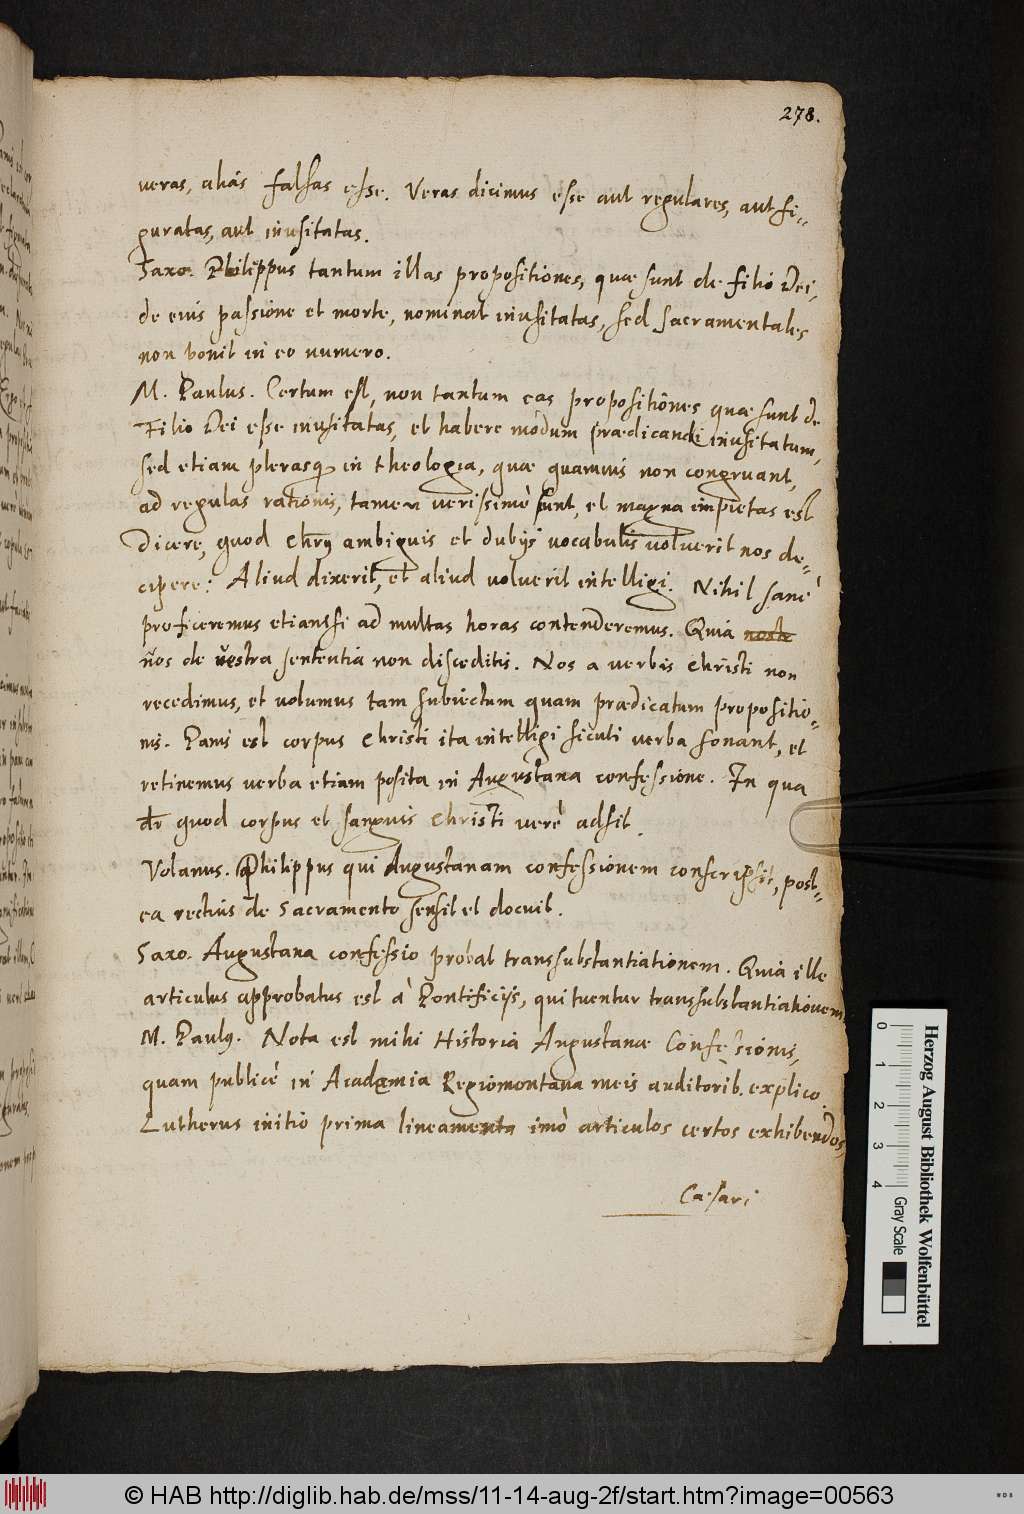 278.
veras, aliàs falsas esse. Veras dicimus esse aut regulares, aut fi-
guratas, aut inusitatas.
Saxo. Philippus tantum illas propositiones, quæ sunt de filio Dei,
de eius passione et morte, nominat inusitatas, sed sacramentales
non ponit in eo numero.
M. Paulus. Certum est, non tantum eas propositiones quæ sunt de
Filio Dei esse inusitatas, et habere modum prædicandi inusitatum,
sed etiam plerasq in theologia, quæ quamuis non congruant,
ad regulas rationis, tamen verissimè sunt, et magna impietas est
Dicere, quod Chrũs ambiguis et dubijs vocabulis voluerit nos de-
cipere: Aliud dixerit, et aliud voluerit intelligi. Nihil sanè
proficeremus etiansi ad multas horas contenderemus. Quia
ũos de vestra sententia non disceditis. Nos a verbis Christi non
recedimus, et volumus tam subiectum quam prædicatum propositio-
nis. Panis est corpus Christi ita intelligi sicuti verba sonant, et
retinemus verba etiam posita in Augustana confessione. In qua
dr quod corpus et sanguis Christi verè adsit.
Volanus. Philippus qui Augustanam confessionem conscripsit, post-
ea rectius de Sacramento sensit et docuit.
Saxo. Augustana confessio probat transsubstantiationem. Quia ille
articulus approbatus est à Pontificijs, qui tuentur transsubstantiationem
M. Paulꝰ. Nota est mihi Historia Augustanæ Confessionis,
quam publicè in Academia Regiomontana meis auditorib. explico.
Lutherus initio prima lineamenta imò articulos certos exhibendos,
Cæsari
Herzog August Bibliothek Wolfenbüttel
0 1 2 3 4
Gray Scale
© HAB http://diglib.hab.de/mss/11-14-aug-2f/start.htm?image=00563